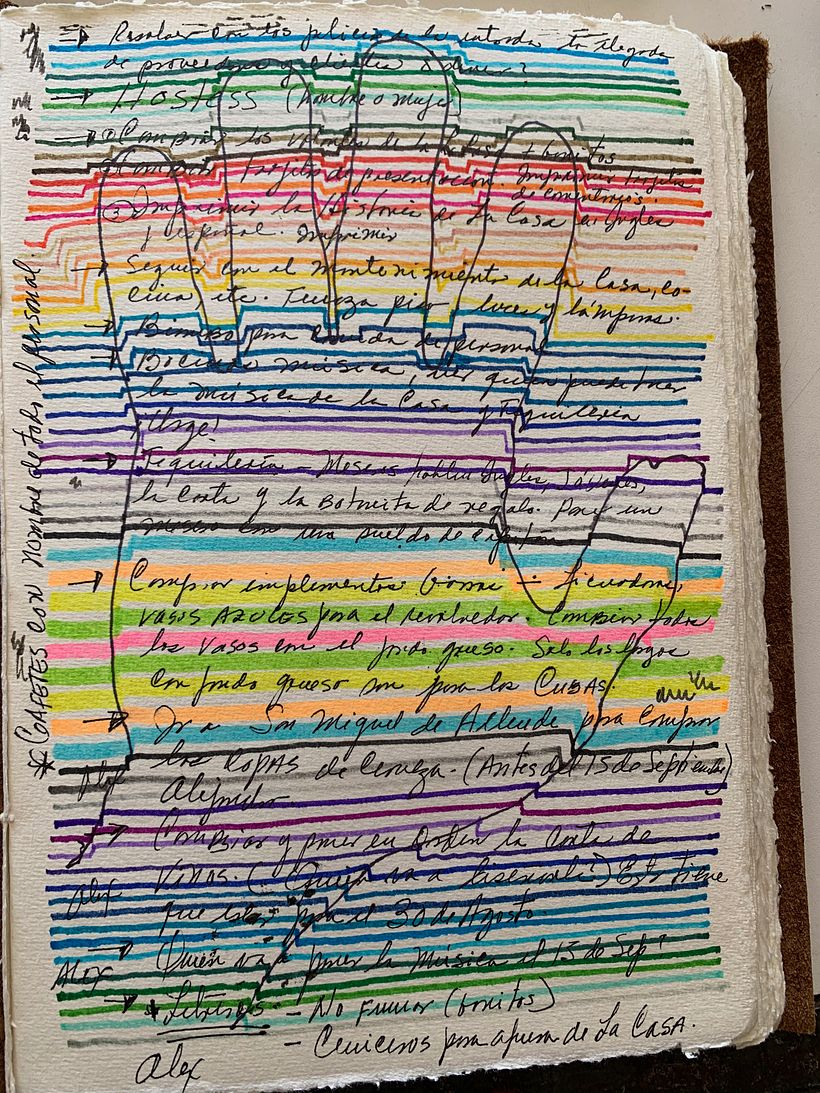 → Resolver con los policia de la entrada la llegada
de proveedores y clientes
→ Hostess (hombre o mujer)
① Cambiar los de la
tarjetas de presentación. Imprimir tarjetas
de comentarios.
③ Imprimir la Historia de La Casa en Ingles
y español. Imprimir
→ Seguir con el mantenimiento de la Casa, co-
cina etc. Terraza piso, luces y lámparas.
→ para comida de personal
→ música, ver quien puede traer
la música de la Casa y Tequilería
¡Urge!
→ Tequilería - Meseros hablen Ingles,
la Carta y la Botanita de regalo. Poner un
mesero con un sueldo de
→ Comprar implementos Barra - Licuadoras,
VASOS AZULES para el revolvedor. Cambiar todos
los vasos con el fondo grueso. Solo los largos
con fondo grueso son para las CUBAS.
→ Ir a San Miguel de Allende para comprar
las COPAS de Cerveza. (Antes del 15 de Septiembre)
Alex Alejandro
→ Cambiar y poner en orden la Carta de
Alex VINOS. (Quien va a) Esto tiene
que estar para el 30 de Agosto.
ALEX → Quién va a poner la Música el 15 de Sep?
→ * Letreros - No Fumar (bonitos)
- Ceniceros para afuera de La CASA.
Alex
* TAPETES con nombre de todo el personal.